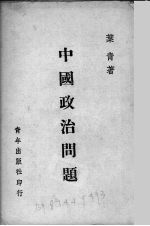 葉青著
中國政治問題
青年出版社印行